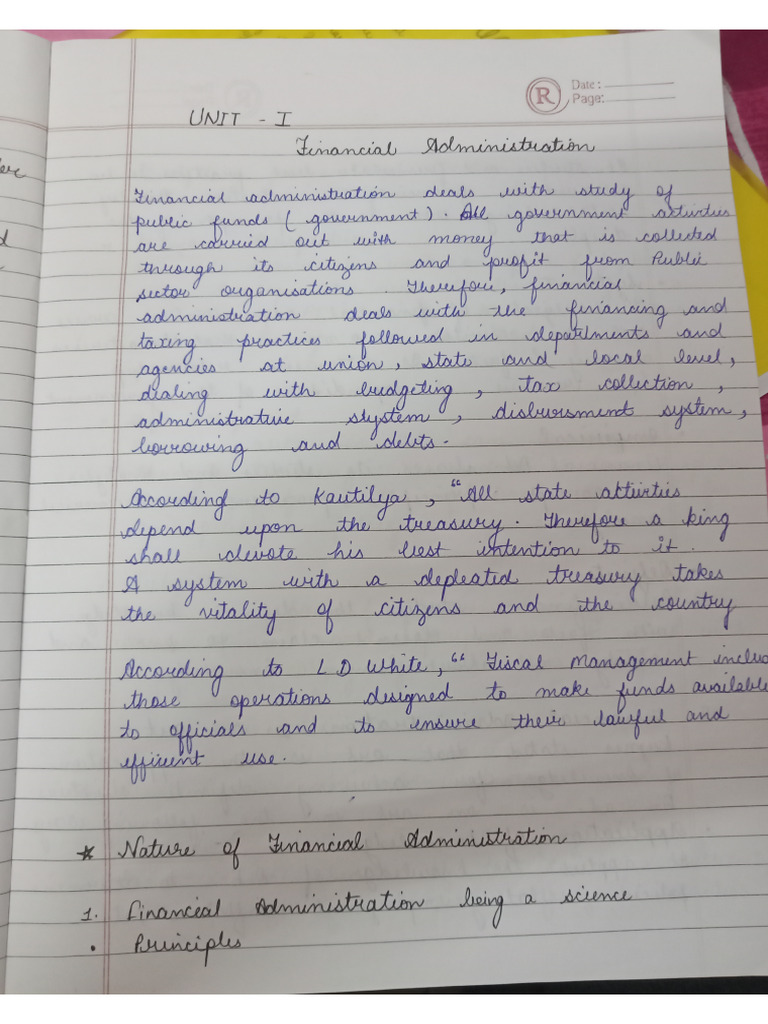 R
Date:
Page:
UNIT - I
Financial Administration
Financial administration deals with study of
public funds (government). All government activities
are carried out with money that is collected
through its citizens and profit from Public
sector organisations. Therefore, financial
administration deals with the financing and
taxing practices followed in departments and
agencies at union, state and local level,
dialing with budgeting, tax collection,
administrative stystem, disbursment system,
borrowing and debts.
According to Kautilya, "All state attivties
depend upon the treasury. Therefore a king
shall devote his best intention to it.
A system with a depleated treasury takes
the vitality of citizens and the country
According to L D White, "Fiscal management includ
those operations designed to make funds available
to officials and to ensure their lawful and
efficient use.
* Nature of Financial Administration
1. Financial Administration being a science
• Principles